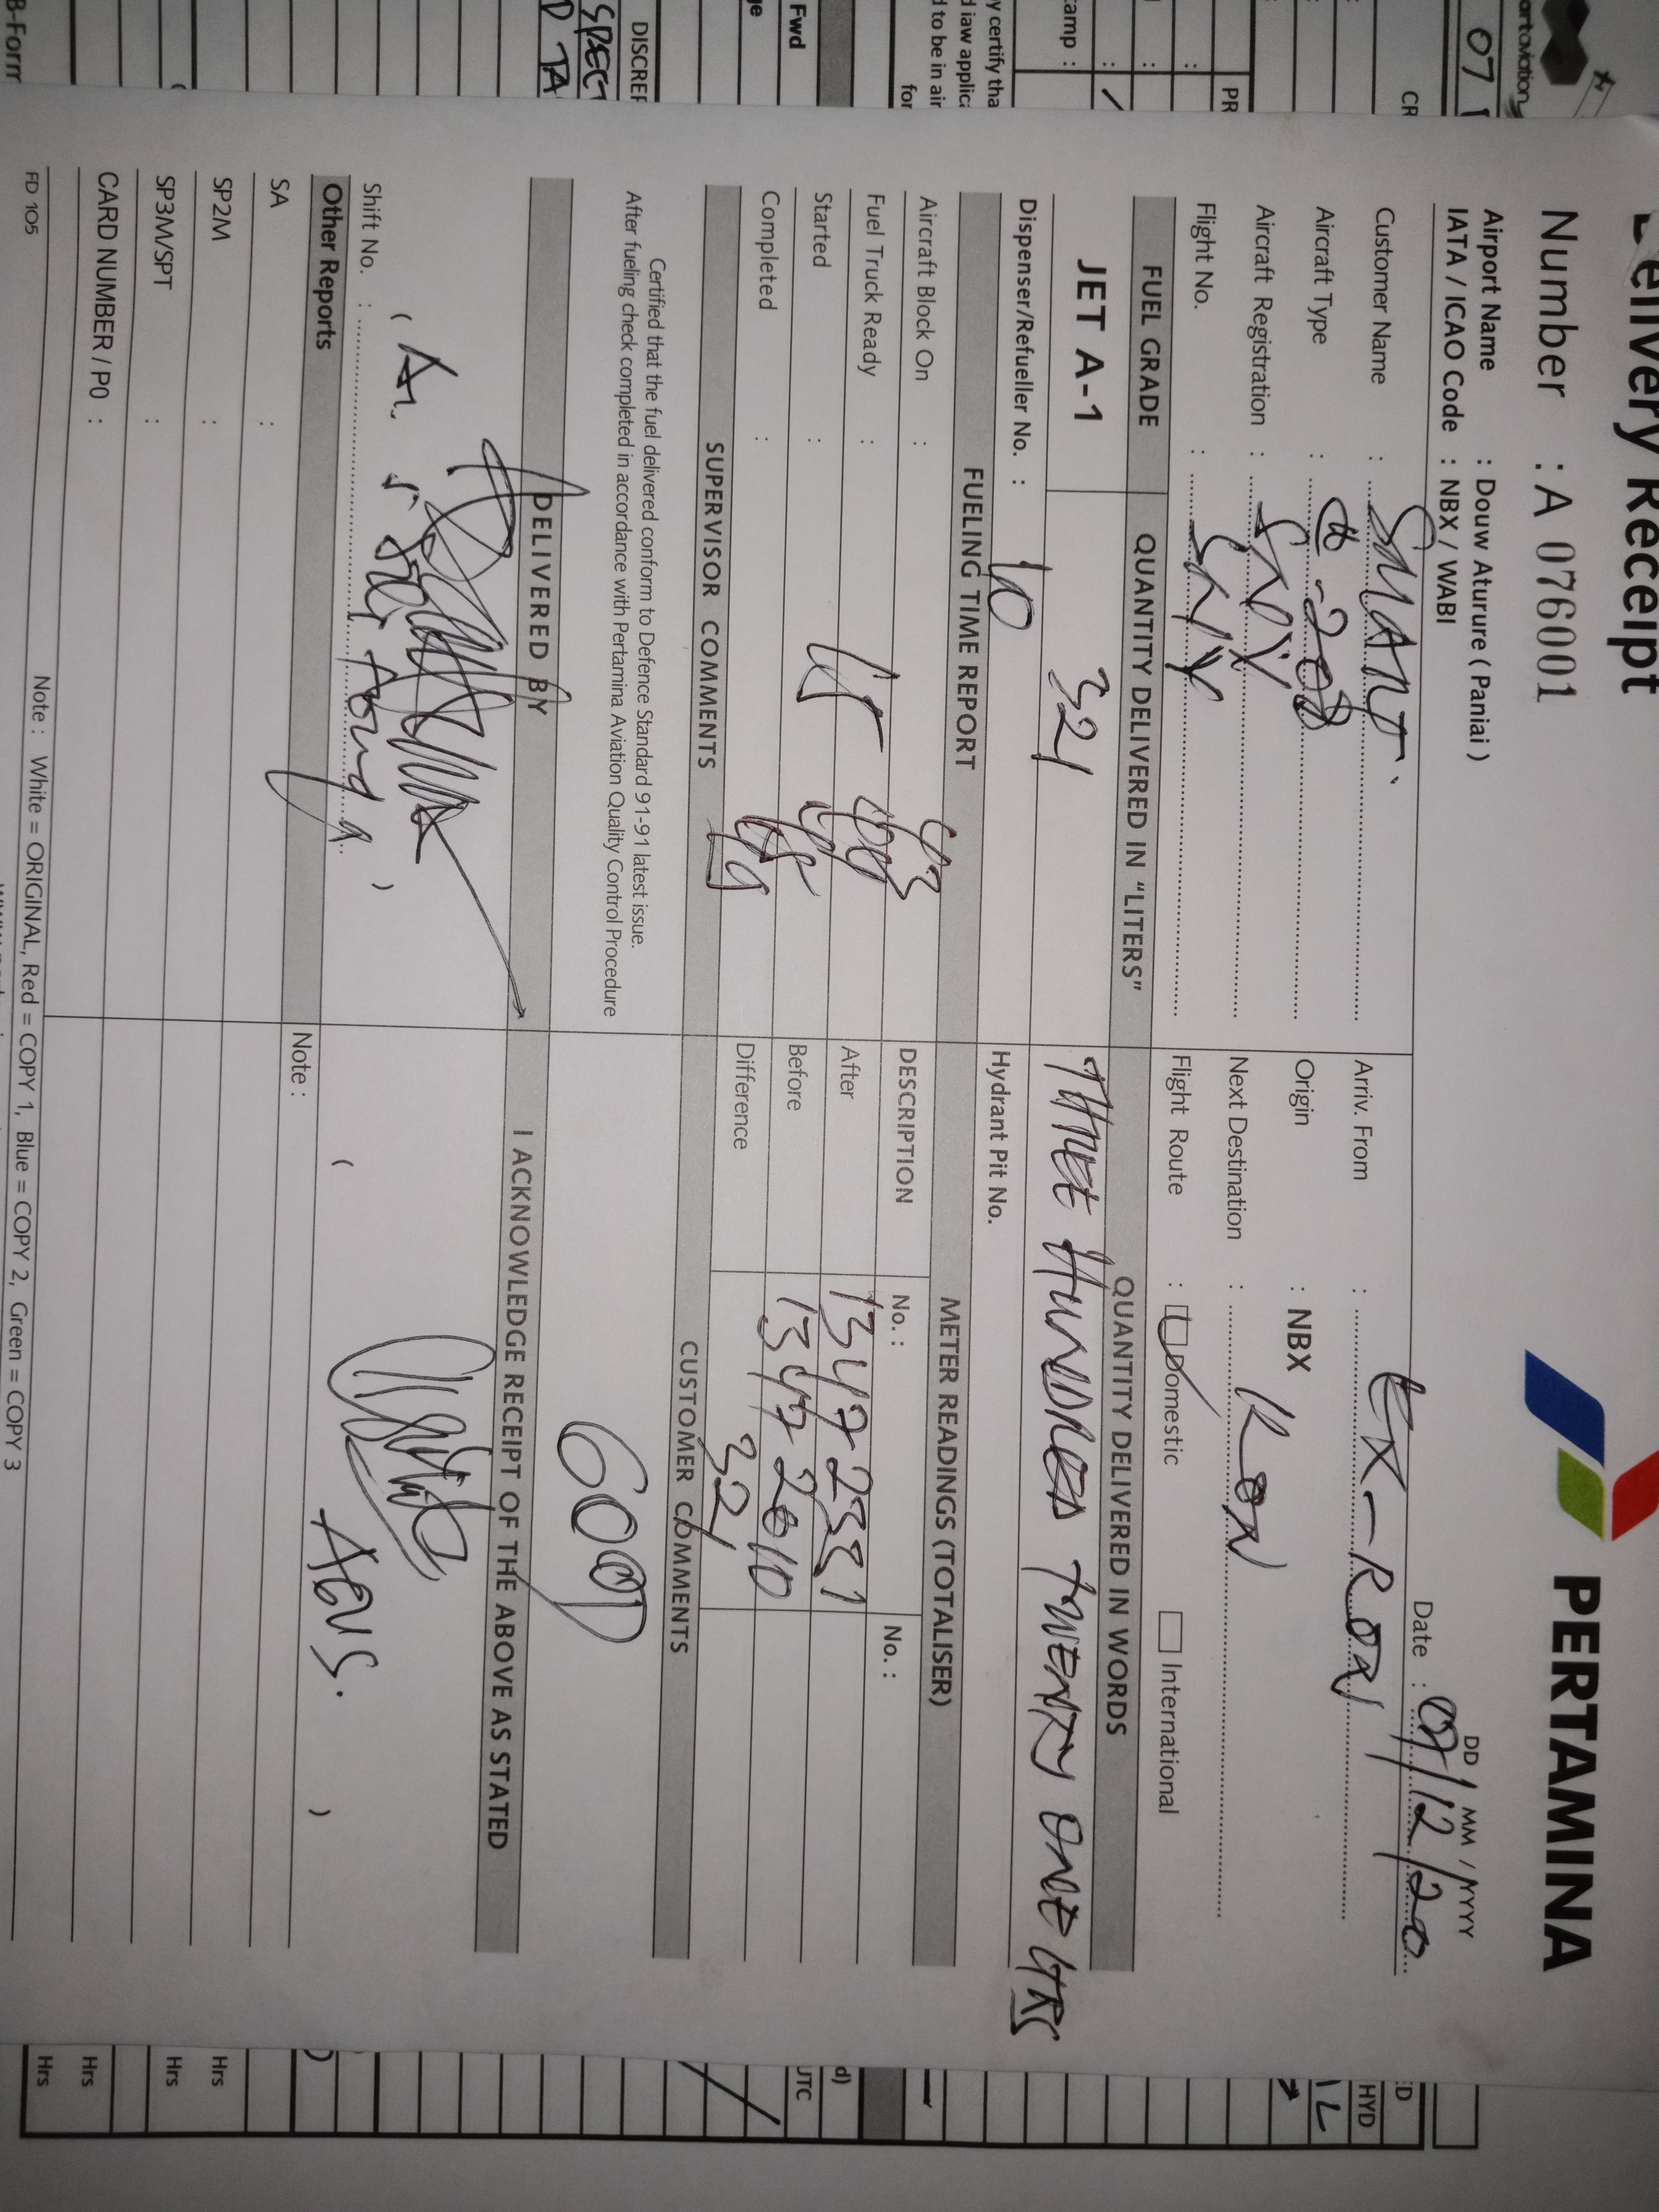 Delivery Receipt
PERTAMINA
Number : A 076001
DD / MM / YYYY
Airport Name : Douw Aturure ( Paniai )
IATA / ICAO Code : NBX / WABI
Date : 07/12/20
Customer Name : SMART.
Arriv. From : EX-KON
Aircraft Type : C-208
Origin : NBX
Aircraft Registration : SNY
Next Destination : KON
Flight No. : SNY
Flight Route : Domestic International
FUEL GRADE QUANTITY DELIVERED IN "LITERS" QUANTITY DELIVERED IN WORDS
JET A-1 321 THREE HUNDRED TWENTY ONE LTRS
Dispenser/Refueller No. : 10 Hydrant Pit No.
FUELING TIME REPORT METER READINGS (TOTALISER)
Aircraft Block On :
DESCRIPTION No. : No. :
Fuel Truck Ready :
After 13472331
Started :
Before 13472010
Completed :
Difference 321
SUPERVISOR COMMENTS CUSTOMER COMMENTS
Certified that the fuel delivered conform to Defence Standard 91-91 latest issue.
After fueling check completed in accordance with Pertamina Aviation Quality Control Procedure
DELIVERED BY I ACKNOWLEDGE RECEIPT OF THE ABOVE AS STATED
( )
( AGUS. )
Shift No. :
Other Reports
Note :
SA :
SP2M :
SP3M/SPT :
CARD NUMBER / PO :
FD 105
Note : White = ORIGINAL, Red = COPY 1, Blue = COPY 2, Green = COPY 3
07
DISCREP
Fwd
B-Form
HYD
UTC
Hrs
Hrs
Hrs
Hrs